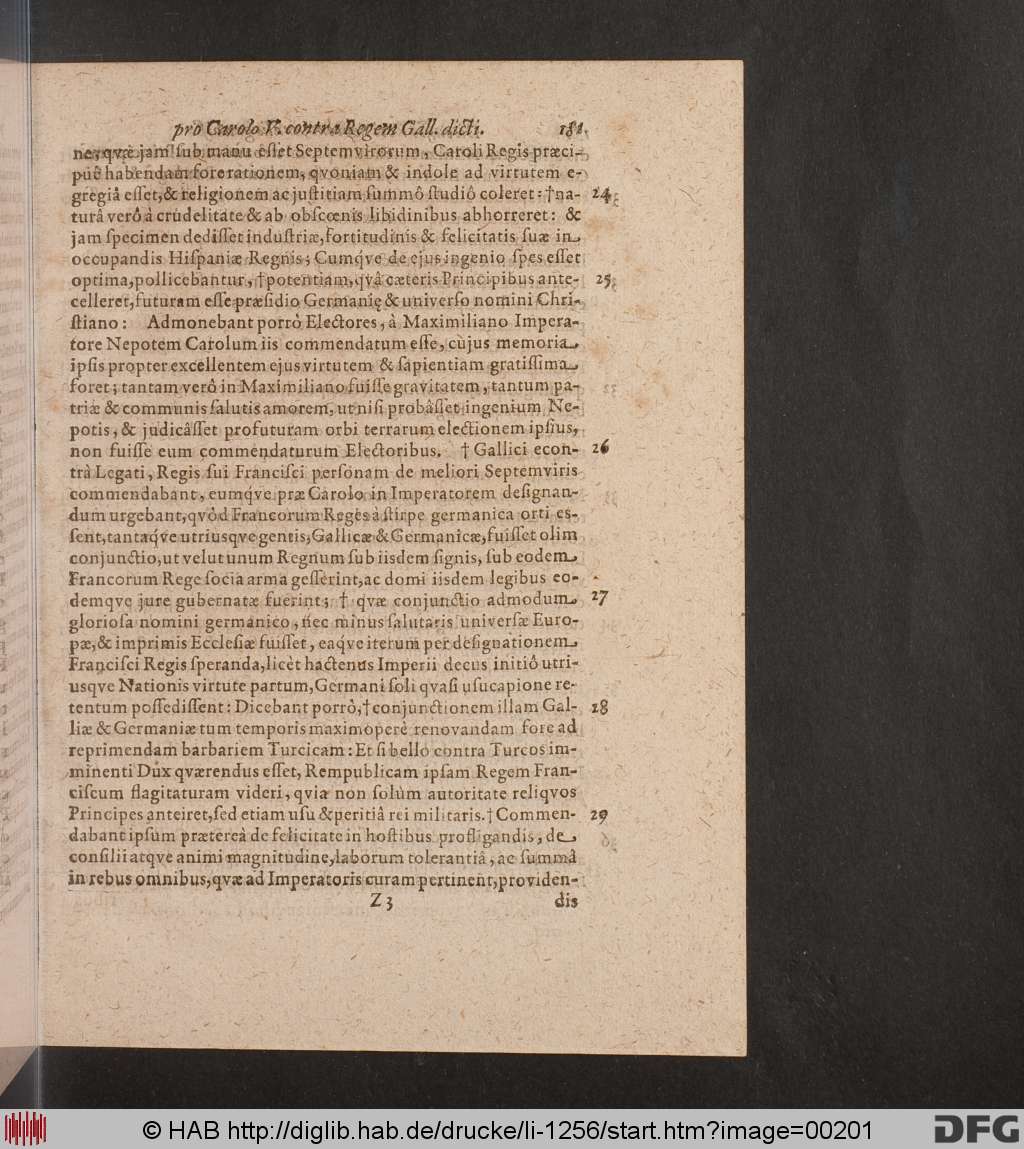 pro Carolo V. contra Regem Gall. dicti. 181.
ne, qvæ jam ſub manu eſſet Septemvirorum, Caroli Regis præci-
puè habendam fore rationem, qvoniam & indole ad virtutem e-
gregiâ eſſet, & religionem ac juſtitiam ſummô ſtudiô coleret: † na- 24
turâ verô à crudelitate & ab obſcœnis libidinibus abhorreret: &
jam ſpecimen dediſſet induſtriæ, fortitudinis & felicitatis ſuæ in
occupandis Hiſpaniæ Regnis; Cumq́ve de ejus ingenio ſpes eſſet
optima, pollicebantur, † potentiam, qvâ cæteris Principibus ante- 25
celleret, futuram eſſe præſidio Germanię & univerſo nomini Chri-
ſtiano: Admonebant porrò Electores, à Maximiliano Impera-
tore Nepotem Carolum iis commendatum eſſe, cùjus memoria
ipſis propter excellentem ejus virtutem & ſapientiam gratiſſima
foret; tantam verô in Maximiliano fuiſſe gravitatem, tantum pa-
triæ & communis ſalutis amorem, ut niſi probâſſet ingenium Ne-
potis, & judicâſſet profuturam orbi terrarum electionem ipſius,
non fuiſſe eum commendaturum Electoribus. † Gallici econ- 26
trà Legati, Regis ſui Franciſci perſonam de meliori Septemviris
commendabant, eumq́ve præ Carolo in Imperatorem deſignan-
dum urgebant, qvôd Francorum Reges à ſtirpe germanica orti eſ-
ſent, tantaq́ve utriusqve gentis, Gallicæ & Germanicæ, fuiſſet olim
conjunctio, ut velut unum Regnum ſub iisdem ſignis, ſub eodem
Francorum Rege ſocia arma geſſerint, ac domi iisdem legibus eo-
demqve jure gubernatæ fuerint; † qvæ conjunctio admodum 27
glorioſa nomini germanico, nec minus ſalutaris univerſæ Euro-
pæ, & imprimis Eccleſiæ fuiſſet, eaq́ve iterum per deſignationem
Franciſci Regis ſperanda, licèt hactenus Imperii decus initiô utri-
usqve Nationis virtute partum, Germani ſoli qvaſi uſucapione re-
tentum poſſediſſent: Dicebant porrò, † conjunctionem illam Gal- 28
liæ & Germaniæ tum temporis maximoperè renovandam fore ad
reprimendam barbariem Turcicam: Et ſi bello contra Turcos im-
minenti Dux qværendus eſſet, Rempublicam ipſam Regem Fran-
ciſcum flagitaturam videri, qvia non ſolùm autoritate reliqvos
Principes anteiret, ſed etiam uſu & peritiâ rei militaris. † Commen- 29
dabant ipſum prætereà de felicitate in hoſtibus profligandis, de
conſilii atqve animi magnitudine, laborum tolerantiâ, ac ſummâ
in rebus omnibus, qvæ ad Imperatoris curam pertinent, providen-
Z 3 dis
© HAB http://diglib.hab.de/drucke/li-1256/start.htm?image=00201
DFG